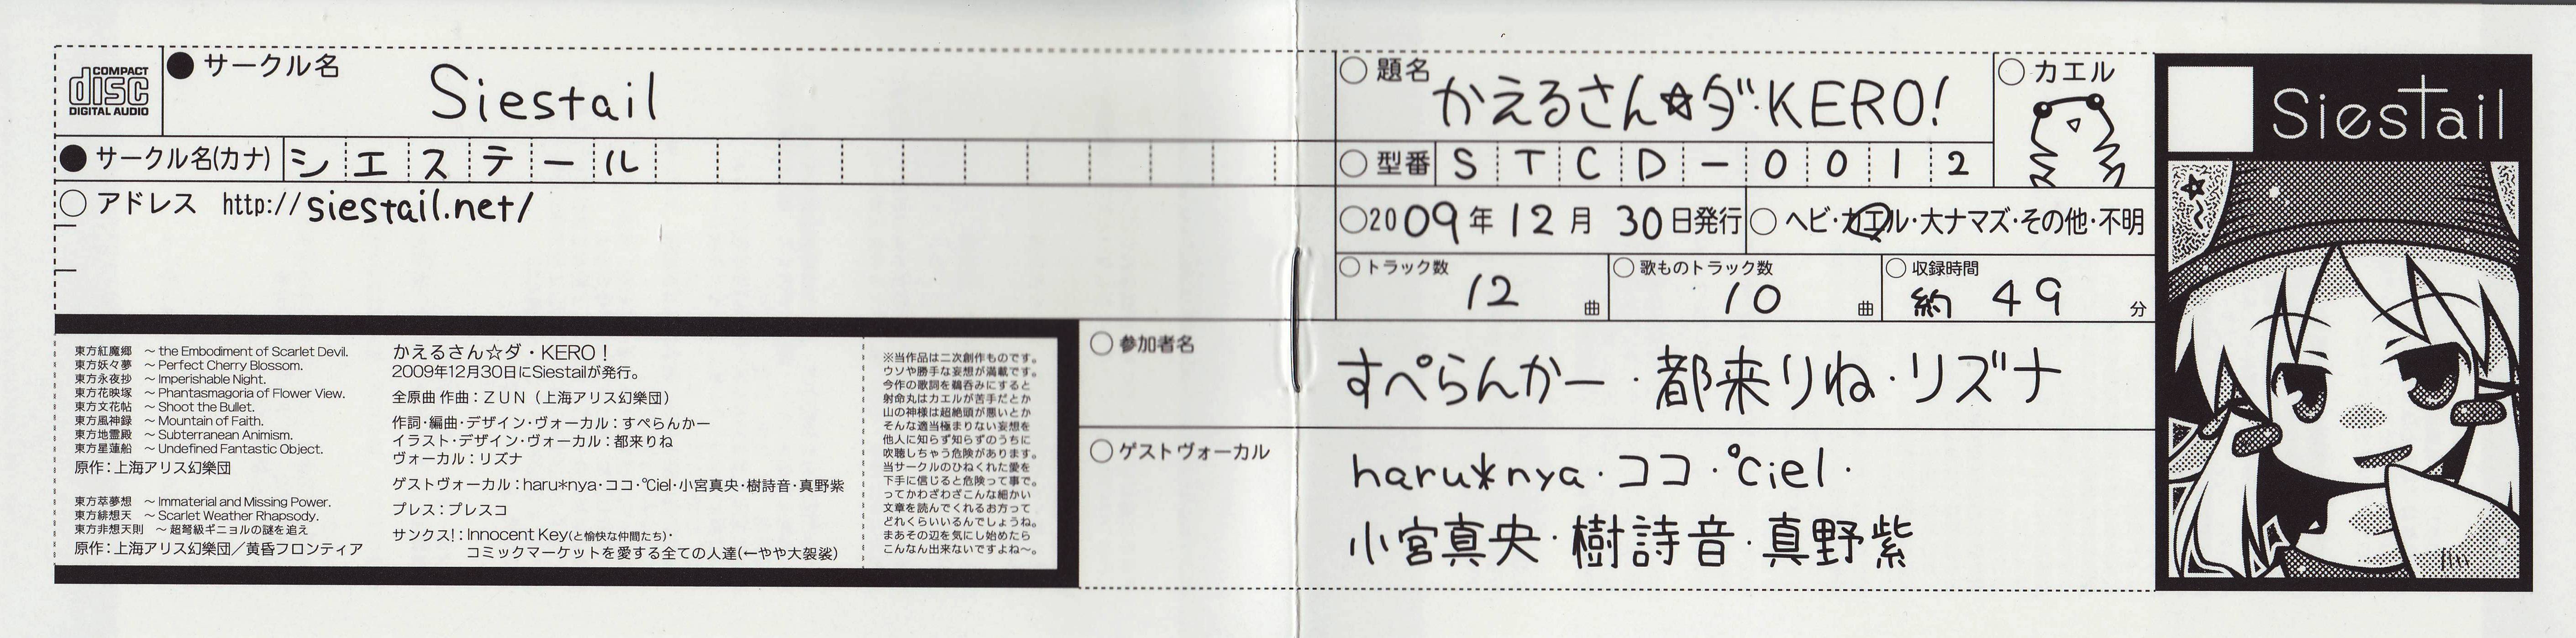 COMPACT
disc
DIGITAL AUDIO
●サークル名
Siestail
●サークル名(カナ) シエステール
○アドレス http://siestail.net/
○題名 かえるさん☆ダ・KERO!
○カエル
○型番 STCD-0012
○2009年12月30日発行
○ヘビ・カエル・大ナマズ・その他・不明
○トラック数 12曲
○歌ものトラック数 10曲
○収録時間 約49分
○参加者名
すぺらんかー・都来りね・リズナ
○ゲストヴォーカル
haru*nya・ココ・℃iel・
小宮真央・樹詩音・真野紫
東方紅魔郷 ～the Embodiment of Scarlet Devil.
東方妖々夢 ～Perfect Cherry Blossom.
東方永夜抄 ～Imperishable Night.
東方花映塚 ～Phantasmagoria of Flower View.
東方文花帖 ～Shoot the Bullet.
東方風神録 ～Mountain of Faith.
東方地霊殿 ～Subterranean Animism.
東方星蓮船 ～Undefined Fantastic Object.
原作：上海アリス幻樂団
東方萃夢想 ～Immaterial and Missing Power.
東方緋想天 ～Scarlet Weather Rhapsody.
東方非想天則 ～超弩級ギニョルの謎を追え
原作：上海アリス幻樂団／黄昏フロンティア
かえるさん☆ダ・KERO！
2009年12月30日にSiestailが発行。
全原曲 作曲：ＺＵＮ（上海アリス幻樂団）
作詞・編曲・デザイン・ヴォーカル：すぺらんかー
イラスト・デザイン・ヴォーカル：都来りね
ヴォーカル：リズナ
ゲストヴォーカル：haru*nya・ココ・℃iel・小宮真央・樹詩音・真野紫
プレス：プレスコ
サンクス!：Innocent Key(と愉快な仲間たち)・
コミックマーケットを愛する全ての人達(←やや大袈裟)
※当作品は二次創作ものです。
ウソや勝手な妄想が満載です。
今作の歌詞を鵜呑みにすると
射命丸はカエルが苦手だとか
山の神様は超絶頭が悪いとか
そんな適当極まりない妄想を
他人に知らず知らずのうちに
吹聴しちゃう危険があります。
当サークルのひねくれた愛を
下手に信じると危険って事で。
ってかわざわざこんな細かい
文章を読んでくれるお方って
どれくらいいるんでしょうね。
まあその辺を気にし始めたら
こんなん出来ないですよね～。
Siestail